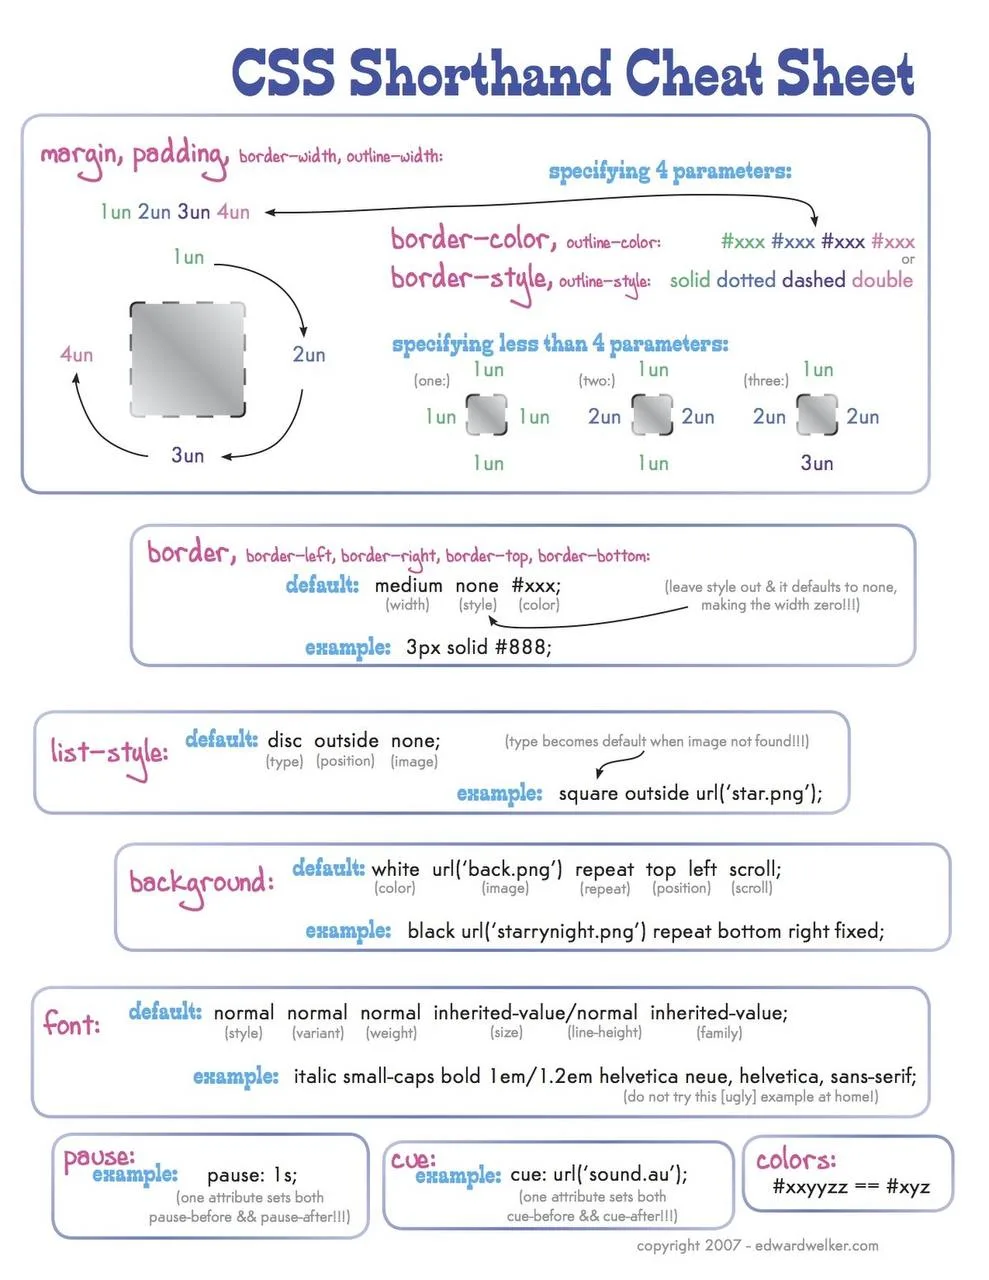 CSS Shorthand Cheat Sheet
margin, padding, border-width, outline-width:
specifying 4 parameters:
1un 2un 3un 4un
border-color, outline-color: #xxx #xxx #xxx #xxx
or
border-style, outline-style: solid dotted dashed double
1un
2un
3un
4un
specifying less than 4 parameters:
(one:) 1un
1un 1un
1un
(two:) 1un
2un 2un
1un
(three:) 1un
2un 2un
3un
border, border-left, border-right, border-top, border-bottom:
default: medium none #xxx;
(width) (style) (color)
(leave style out & it defaults to none,
making the width zero!!!)
example: 3px solid #888;
list-style: default: disc outside none;
(type) (position) (image)
(type becomes default when image not found!!!)
example: square outside url('star.png');
background: default: white url('back.png') repeat top left scroll;
(color) (image) (repeat) (position) (scroll)
example: black url('starrynight.png') repeat bottom right fixed;
font: default: normal normal normal inherited-value/normal inherited-value;
(style) (variant) (weight) (size) (line-height) (family)
example: italic small-caps bold 1em/1.2em helvetica neue, helvetica, sans-serif;
(do not try this [ugly] example at home!)
pause:
example: pause: 1s;
(one attribute sets both
pause-before && pause-after!!!)
cue:
example: cue: url('sound.au');
(one attribute sets both
cue-before && cue-after!!!)
colors:
#xxyyzz == #xyz
copyright 2007 - edwardwelker.com